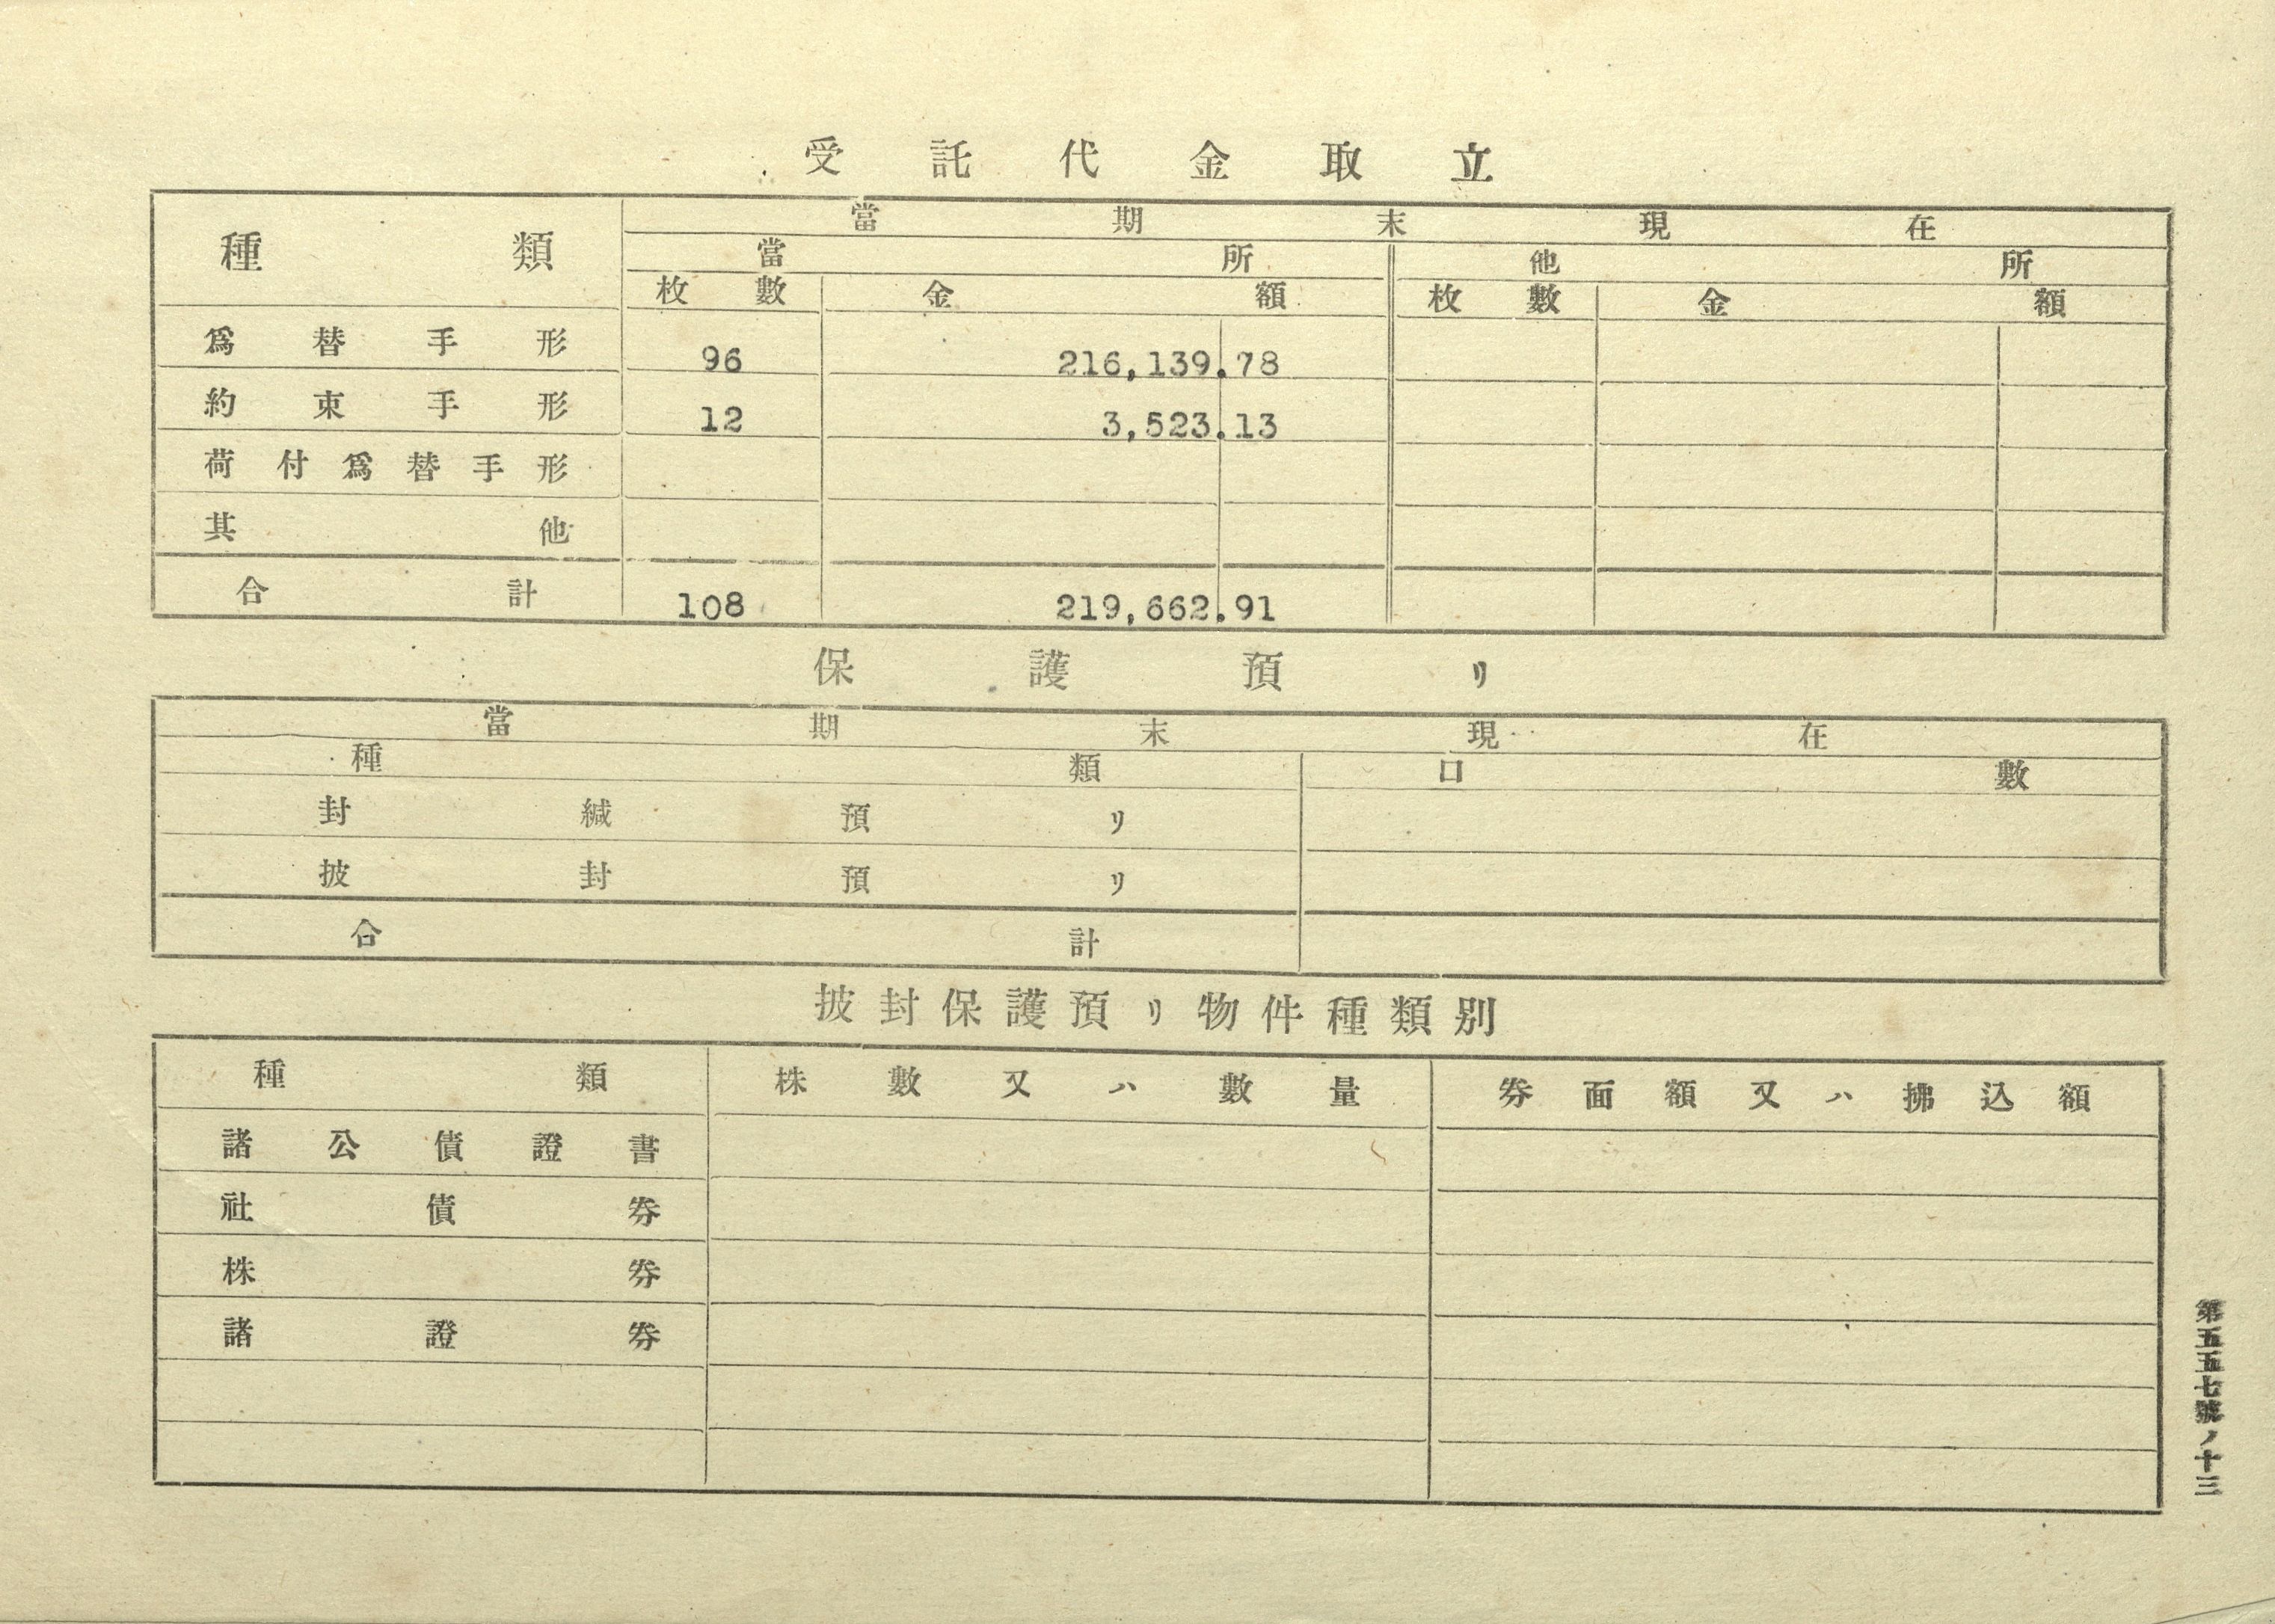 受託代金取立
種類 當期末現在
當所 他所
枚數 金額 枚數 金額
爲替手形 96 216,139.78
約束手形 12 3,523.13
荷付爲替手形
其他
合計 108 219,662.91
保護預リ
當期末現在
種類 口數
封緘預リ
披封預リ
合計
披封保護預リ物件種類別
種類 株數又ハ數量 券面額又ハ拂込額
諸公債證書
社債券
株券
諸證券
第五五七號ノ十三